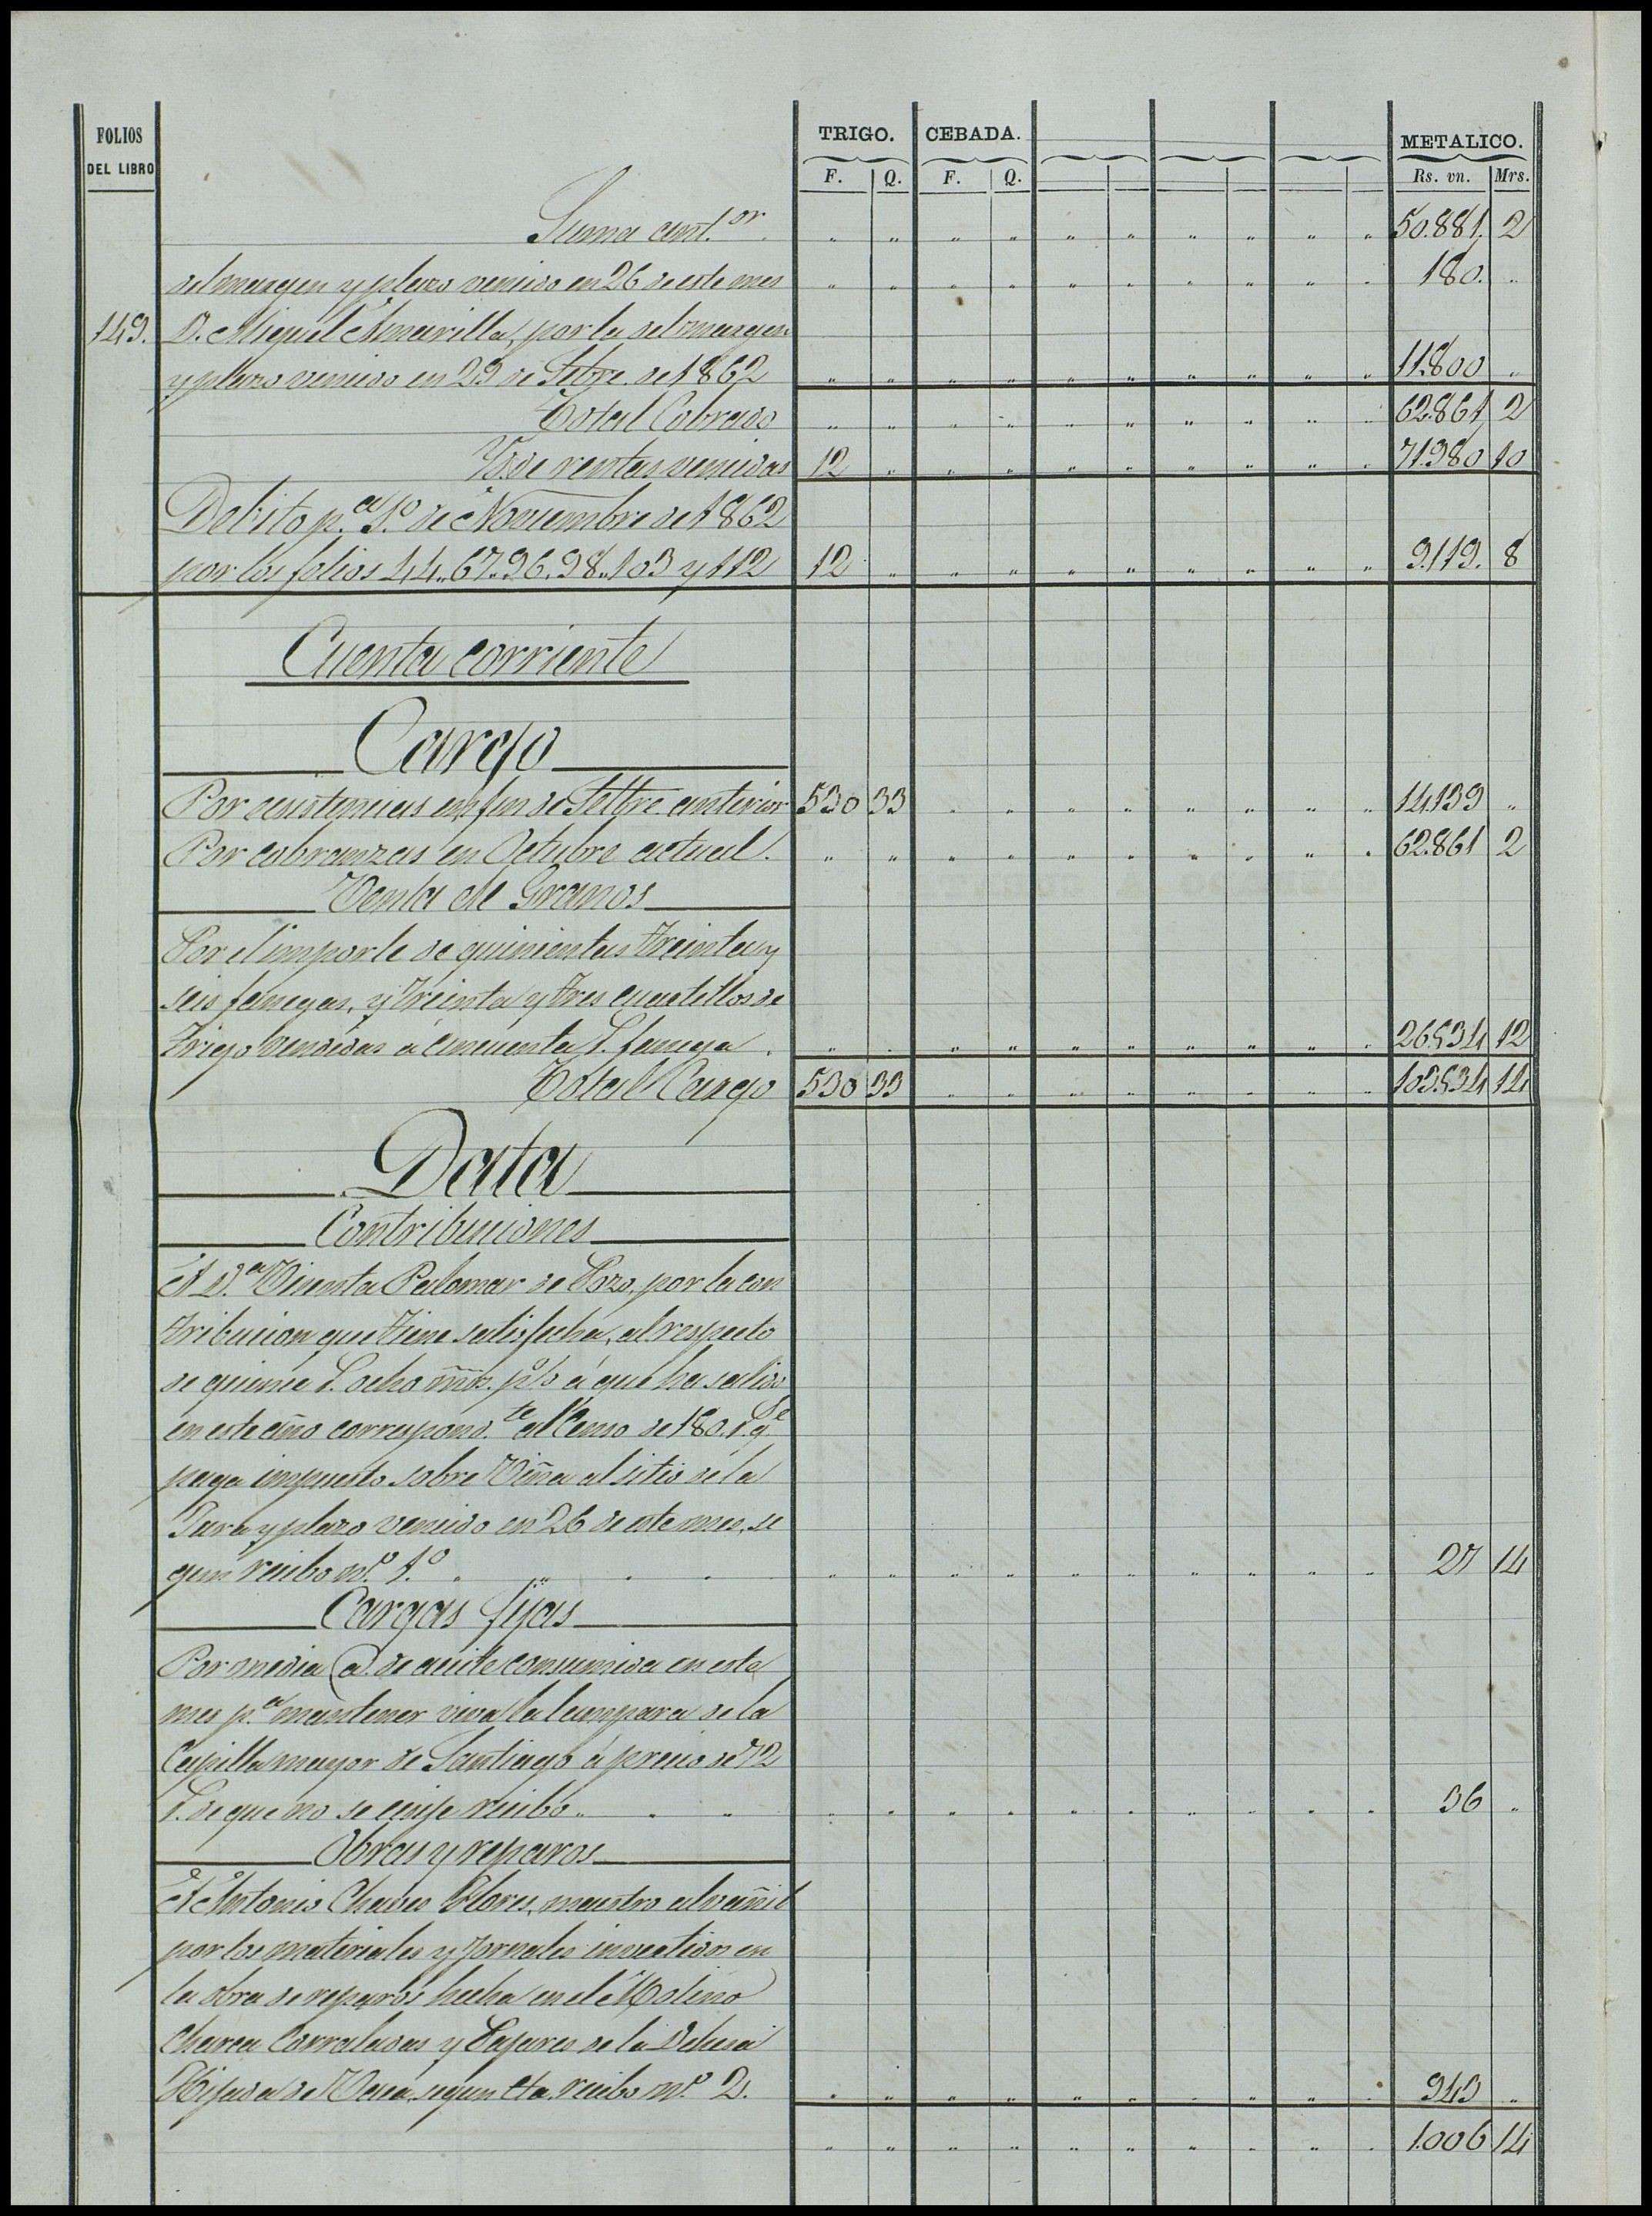 FOLIOS DEL LIBRO TRIGO. CEBADA. METALICO.
F. Q. F. Q. Rs. vn. Mrs.
Suma ant.or " " " " " " " " " " 50.881. 2
del margen y plazo vencido en 26 de este mes " " " " " " " " " " 180. "
149. D. Miguel Amarilla, por la del margen
y plazo vencido en 29 de Setbre. de 1862 " " " " " " " " " " 11.800 "
Total Cobrado " " " " " " " " " " 62.861 2
Yd. de rentas vencidas 12 " " " " " " " " " 71.980 10
Debito p.a el 1.o de Noviembre de 1862
por los folios 44.. 67.. 96.. 98.. 103 y 112 12 " " " " " " " " " 9.119. 8
Cuenta corriente
Cargo
Por existencias en fin de Settre. anterior 530 33 " " " " " " " " 14.139 "
Por cobranzas en Octubre actual. " " " " " " " " " " 62.861 2
Venta de Granos
Por el importe de quinientas treinta y
seis fanegas, y treinta y tres cuartillos de
Trigo vendidas á cincuenta r. fanega. " " " " " " " " " " 26.534 12
Total Cargo 530 33 " " " " " " " " 103.534 14
Data
Contribuciones
A D.a Vicenta Palomar de Pozo, por la con
tribucion que tiene satisfecha, al respecto
de quince r. ocho mrs. p% á que ha salido
en este año correspond.te al Censo de 180. r. q.e
paga impuesto sobre Viña al sitio de la
Jara y plazo vencido en 26 de este mes, se
gun recibo n.o 1.o " " " " " " " " " " 27 14
Cargas fijas
Por media @. de aceite consumida en este
mes p.a mantener viva la lampara de la
Capilla mayor de Santiago á precio de 72
r. de que no se exije recibo.. " " " " " " " " " " 36 "
Obras y reparos
A Antonio Chaves Flores, maestro alvañil
por los materiales y jornales invertidos en
la obra de reparos hecha en el Molino
Charca Corraladas y Pajares de la Dehesa
Hijada de Vaca, segun cta. recibo n.o 2. " " " " " " " " " " 943 "
" " " " " " " " " " 1.006 14